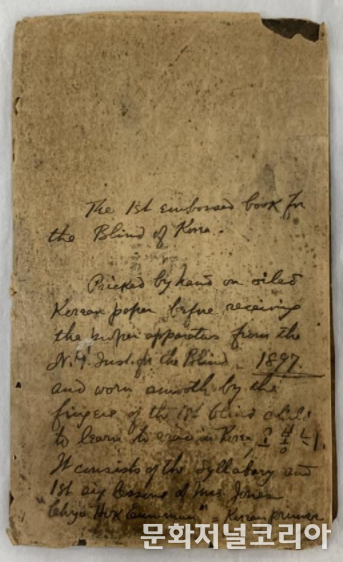 The 1st embossed book for
the Blind of Korea.
Pricked by hand on oiled
Korean paper before receiving
the proper apparatus from the
N.Y. Inst. for the Blind - 1897.
and worn smooth by the
fingers of the 1st blind child
to learn to read in Korea
It consists of the syllabary and
1st six lessons of Mrs. Jones
Korean primer
문화저널코리아